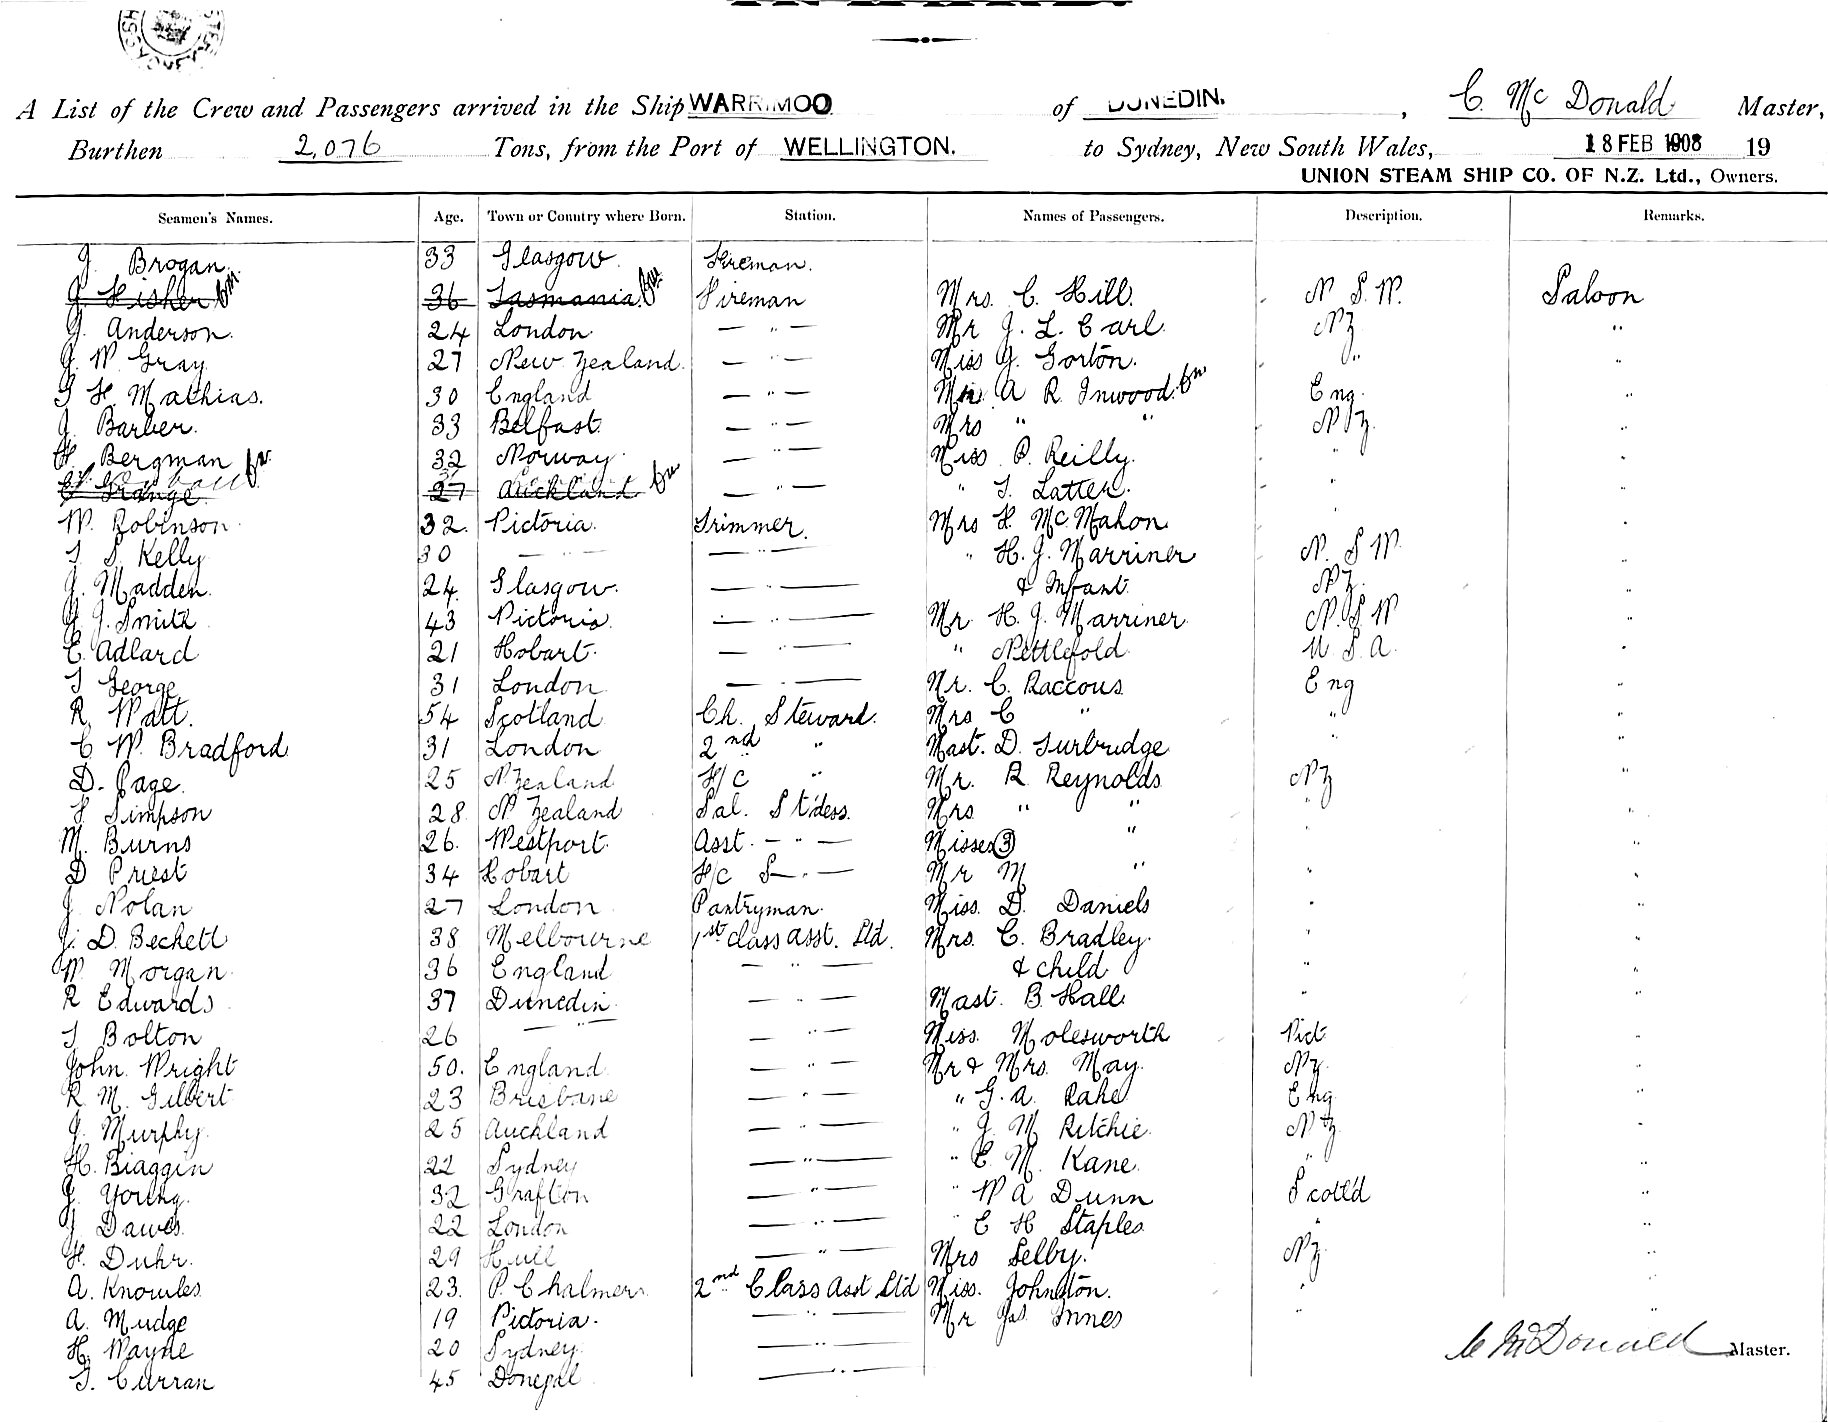 A List of the Crew and Passengers arrived in the Ship WARRIMOO of DUNEDIN, C. McDonald Master,
Burthen 2,076 Tons, from the Port of WELLINGTON. to Sydney, New South Wales, 18 FEB 1908 19
UNION STEAM SHIP CO. OF N.Z. Ltd., Owners.
Seamen's Names. Age. Town or Country where Born. Station. Names of Passengers. Description. Remarks.
J. Brogan. 33 Glasgow. Fireman.
J. Fisher 36 Tasmania. Fireman Mrs. C. Hill. N. S. W. Saloon
J. Anderson. 24 London. — " — Mr J. L. Carl. NZ "
J. W. Gray 27 New Zealand. — " — Miss J. Gorton. " "
G H. Mathias. 30 England — " — A R. Inwood. Eng. "
J. Barber. 33 Belfast. — " — Mrs " " N Z. "
H. Bergman 32 Norway. — " — Miss P. Reilly. " "
Grange. 27 Auckland — " — " T. Latter. " "
W. Robinson. 32. Victoria. Trimmer. Mrs H. McMahon " "
T. S. Kelly 30 — " — — " — " H. J. Marriner N. S W. "
J. Madden. 24. Glasgow. — " — & Infant. NZ. "
J. Smith 43 Victoria. — " — Mr. H. J. Marriner N. S. W "
E. Adlard 21 Hobart. — " — " Nettlefold U. S. A. "
T George 31 London — " — Mr. C. Raccous Eng "
R. Watt. 54 Scotland Ch. Steward. Mrs C " " "
C W. Bradford 31 London 2nd " Mast. D. Turbridge " "
D. Page. 25 N. Zealand F/C " Mr. R. Reynolds NZ "
F Simpson 28 N Zealand Sal. St'dess. Mrs " " " "
M. Burns 26. Westport. Asst. — " — Misses (3) " " "
D Priest 34 Hobart F/c S— " — Mr M " " "
J. Nolan 27 London Pantryman. Miss. D. Daniels " "
J. D. Beckett 38 Melbourne 1st class asst. Std. Mrs. C. Bradley. " "
W. Morgan. 36 England — " — & child " "
R Edwards 37 Dunedin. — " — Mast. B. Hall " "
T Bolton 26 — " — — " — Miss. Molesworth Vict. "
John. Wright 50. England — " — Mr & Mrs. May. NZ. "
R. M. Gilbert 23 Brisbane — " — " G. A. Rahe Eng "
J. Murphy. 25 Auckland — " — " J. M. Ritchie. NZ. "
H. Biaggin 22 Sydney — " — " C. M. Kane. " "
J. Young. 32 Grafton — " — " W A Dunn Scotl'd "
J Dawes. 22 London — " — " C H Staples " "
H. Duhr. 29 Hull — " — Mrs Selby. NZ. "
A. Knowles 23. P. Chalmers. 2nd Class Asst Std Miss. Johnston. " "
A. Mudge 19 Victoria. — " — Mr Jas. Innes " "
H. Wayne 20 Sydney. — " — C McDonald Master.
T. Curran 45 Donegal — " —